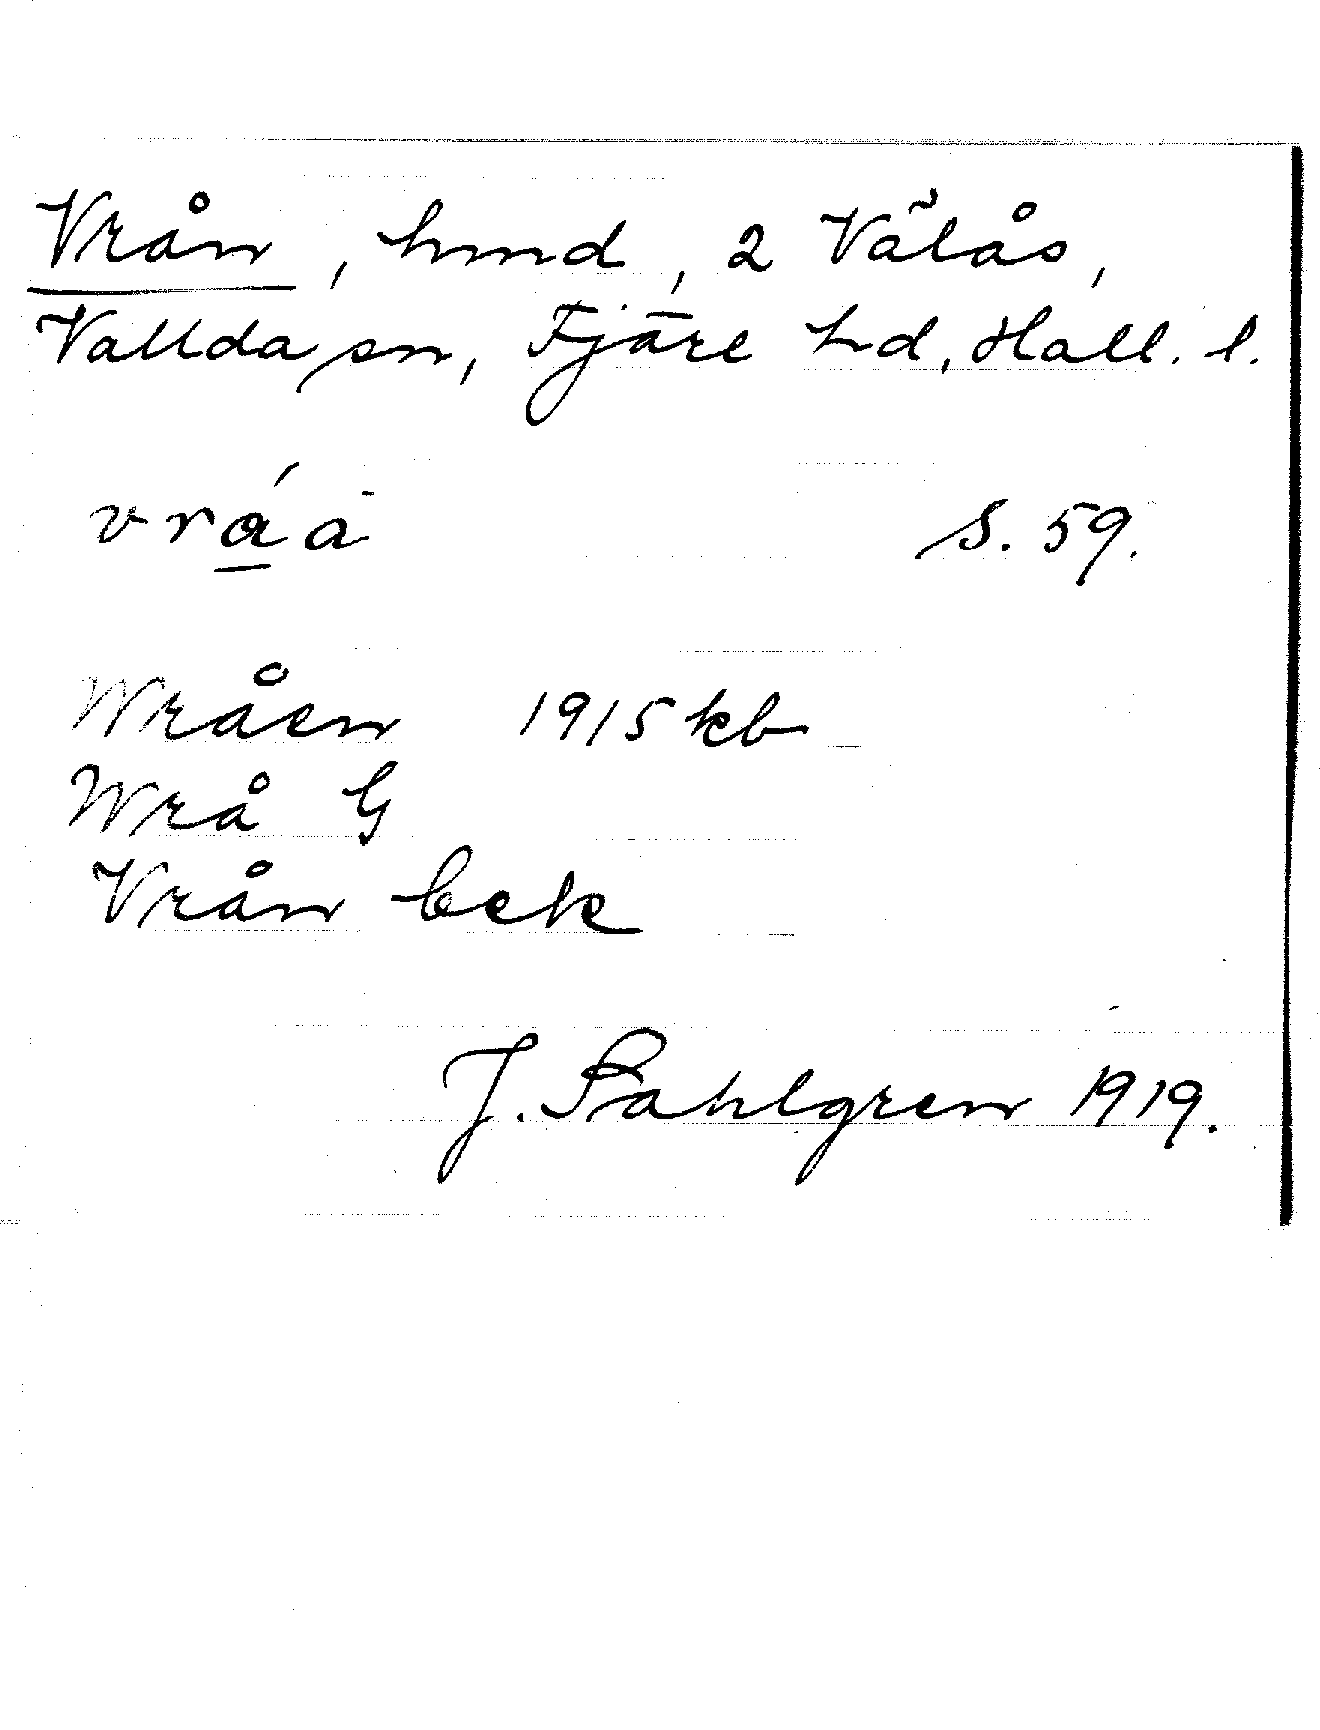 Vrån, hmd, 2 Välås,
Vallda sn, Fjäre hd, Hall. l.
vráa S. 59.
Wråen 1915 kb
Wrå G
Vrån bek
J. Sahlgren 1919.